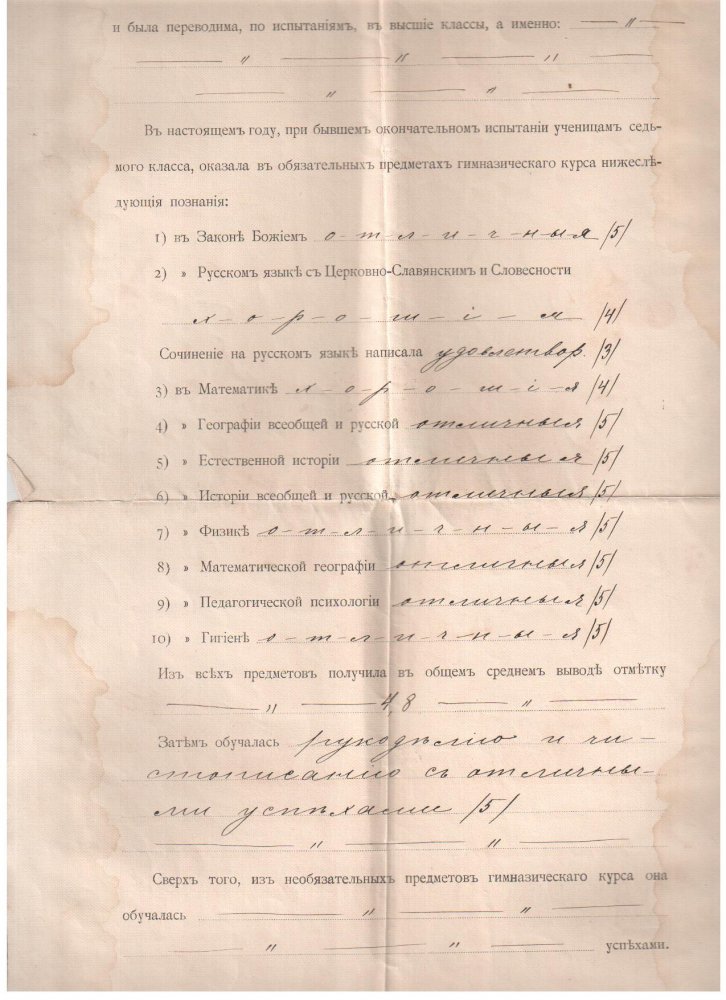 и была переводима, по испытаніямъ, въ высшіе классы, а именно: — " —
— " — " — " —
— " — " —
Въ настоящемъ году, при бывшемъ окончательномъ испытаніи ученицамъ седь-
мого класса, оказала въ обязательныхъ предметахъ гимназическаго курса нижеслѣ-
дующія познанія:
1) въ Законѣ Божіемъ о-т-л-и-ч-ны-я /5/
2) » Русскомъ языкѣ съ Церковно-Славянскимъ и Словесности
х-о-р-о-ш-і-я /4/
Сочиненіе на русскомъ языкѣ написала удовлетвор. /3/
3) въ Математикѣ х-о-р-о-ш-і-я /4/
4) » Географіи всеобщей и русской отличныя /5/
5) » Естественной исторіи отличныя /5/
6) » Исторіи всеобщей и русской, отличныя /5/
7) » Физикѣ о-т-л-и-ч-н-ы-я /5/
8) » Математической географіи отличныя /5/
9) » Педагогической психологіи отличныя /5/
10) » Гигіенѣ о-т-л-и-ч-н-ы-я /5/
Изъ всѣхъ предметовъ получила въ общемъ среднемъ выводѣ отмѣтку
— " — 4,8 — " —
Затѣмъ обучалась рукодѣлію и чи-
стописанію съ отличны-
ми успѣхами /5/
— " — " —
Сверхъ того, изъ необязательныхъ предметовъ гимназическаго курса она
обучалась — " — " —
— " — " — успѣхами.